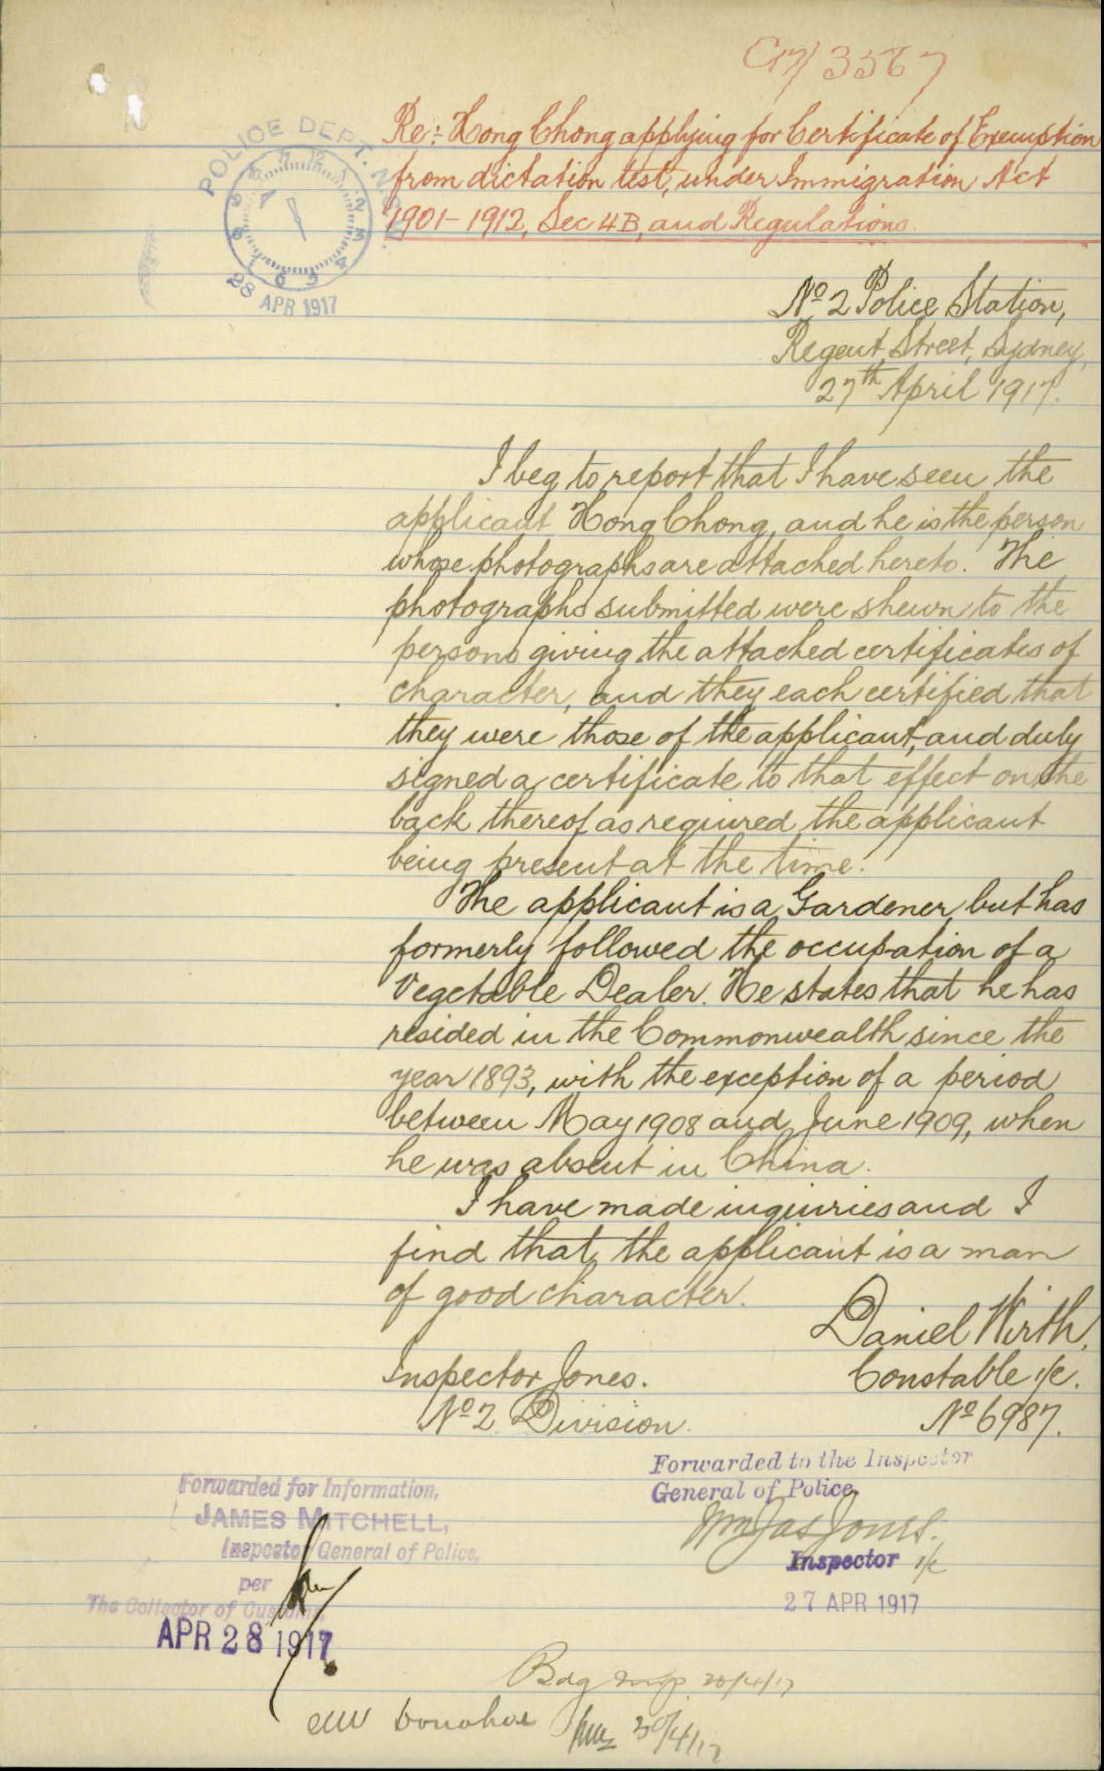 C17/3567
POLICE DEPT. N.S.W.
28 APR 1917
Re: Hong Chong applying for Certificate of Exemption
from dictation test, under Immigration Act
1901-1912, Sec 4B, and Regulations.
No 2 Police Station,
Regent Street, Sydney,
27th April 1917.
I beg to report that I have seen the
applicant Hong Chong, and he is the person
whose photographs are attached hereto. The
photographs submitted were shewn to the
persons giving the attached certificates of
character, and they each certified that
they were those of the applicant, and duly
signed a certificate to that effect on the
back thereof as required the applicant
being present at the time.
The applicant is a Gardener, but has
formerly followed the occupation of a
Vegetable Dealer. He states that he has
resided in the Commonwealth since the
year 1893, with the exception of a period
between May 1908 and June 1909, when
he was absent in China.
I have made inquiries and I
find that the applicant is a man
of good character.
Daniel Wirth,
Constable 1/c.
No 6987.
Inspector Jones.
No 2 Division.
Forwarded to the Inspector
General of Police.
Wm Jas Jones.
Inspector 1/c
27 APR 1917
Forwarded for Information,
JAMES MITCHELL,
Inspector General of Police,
per
The Collector of Customs,
APR 28 1917
30/4/17
Donohoe
30/4/17